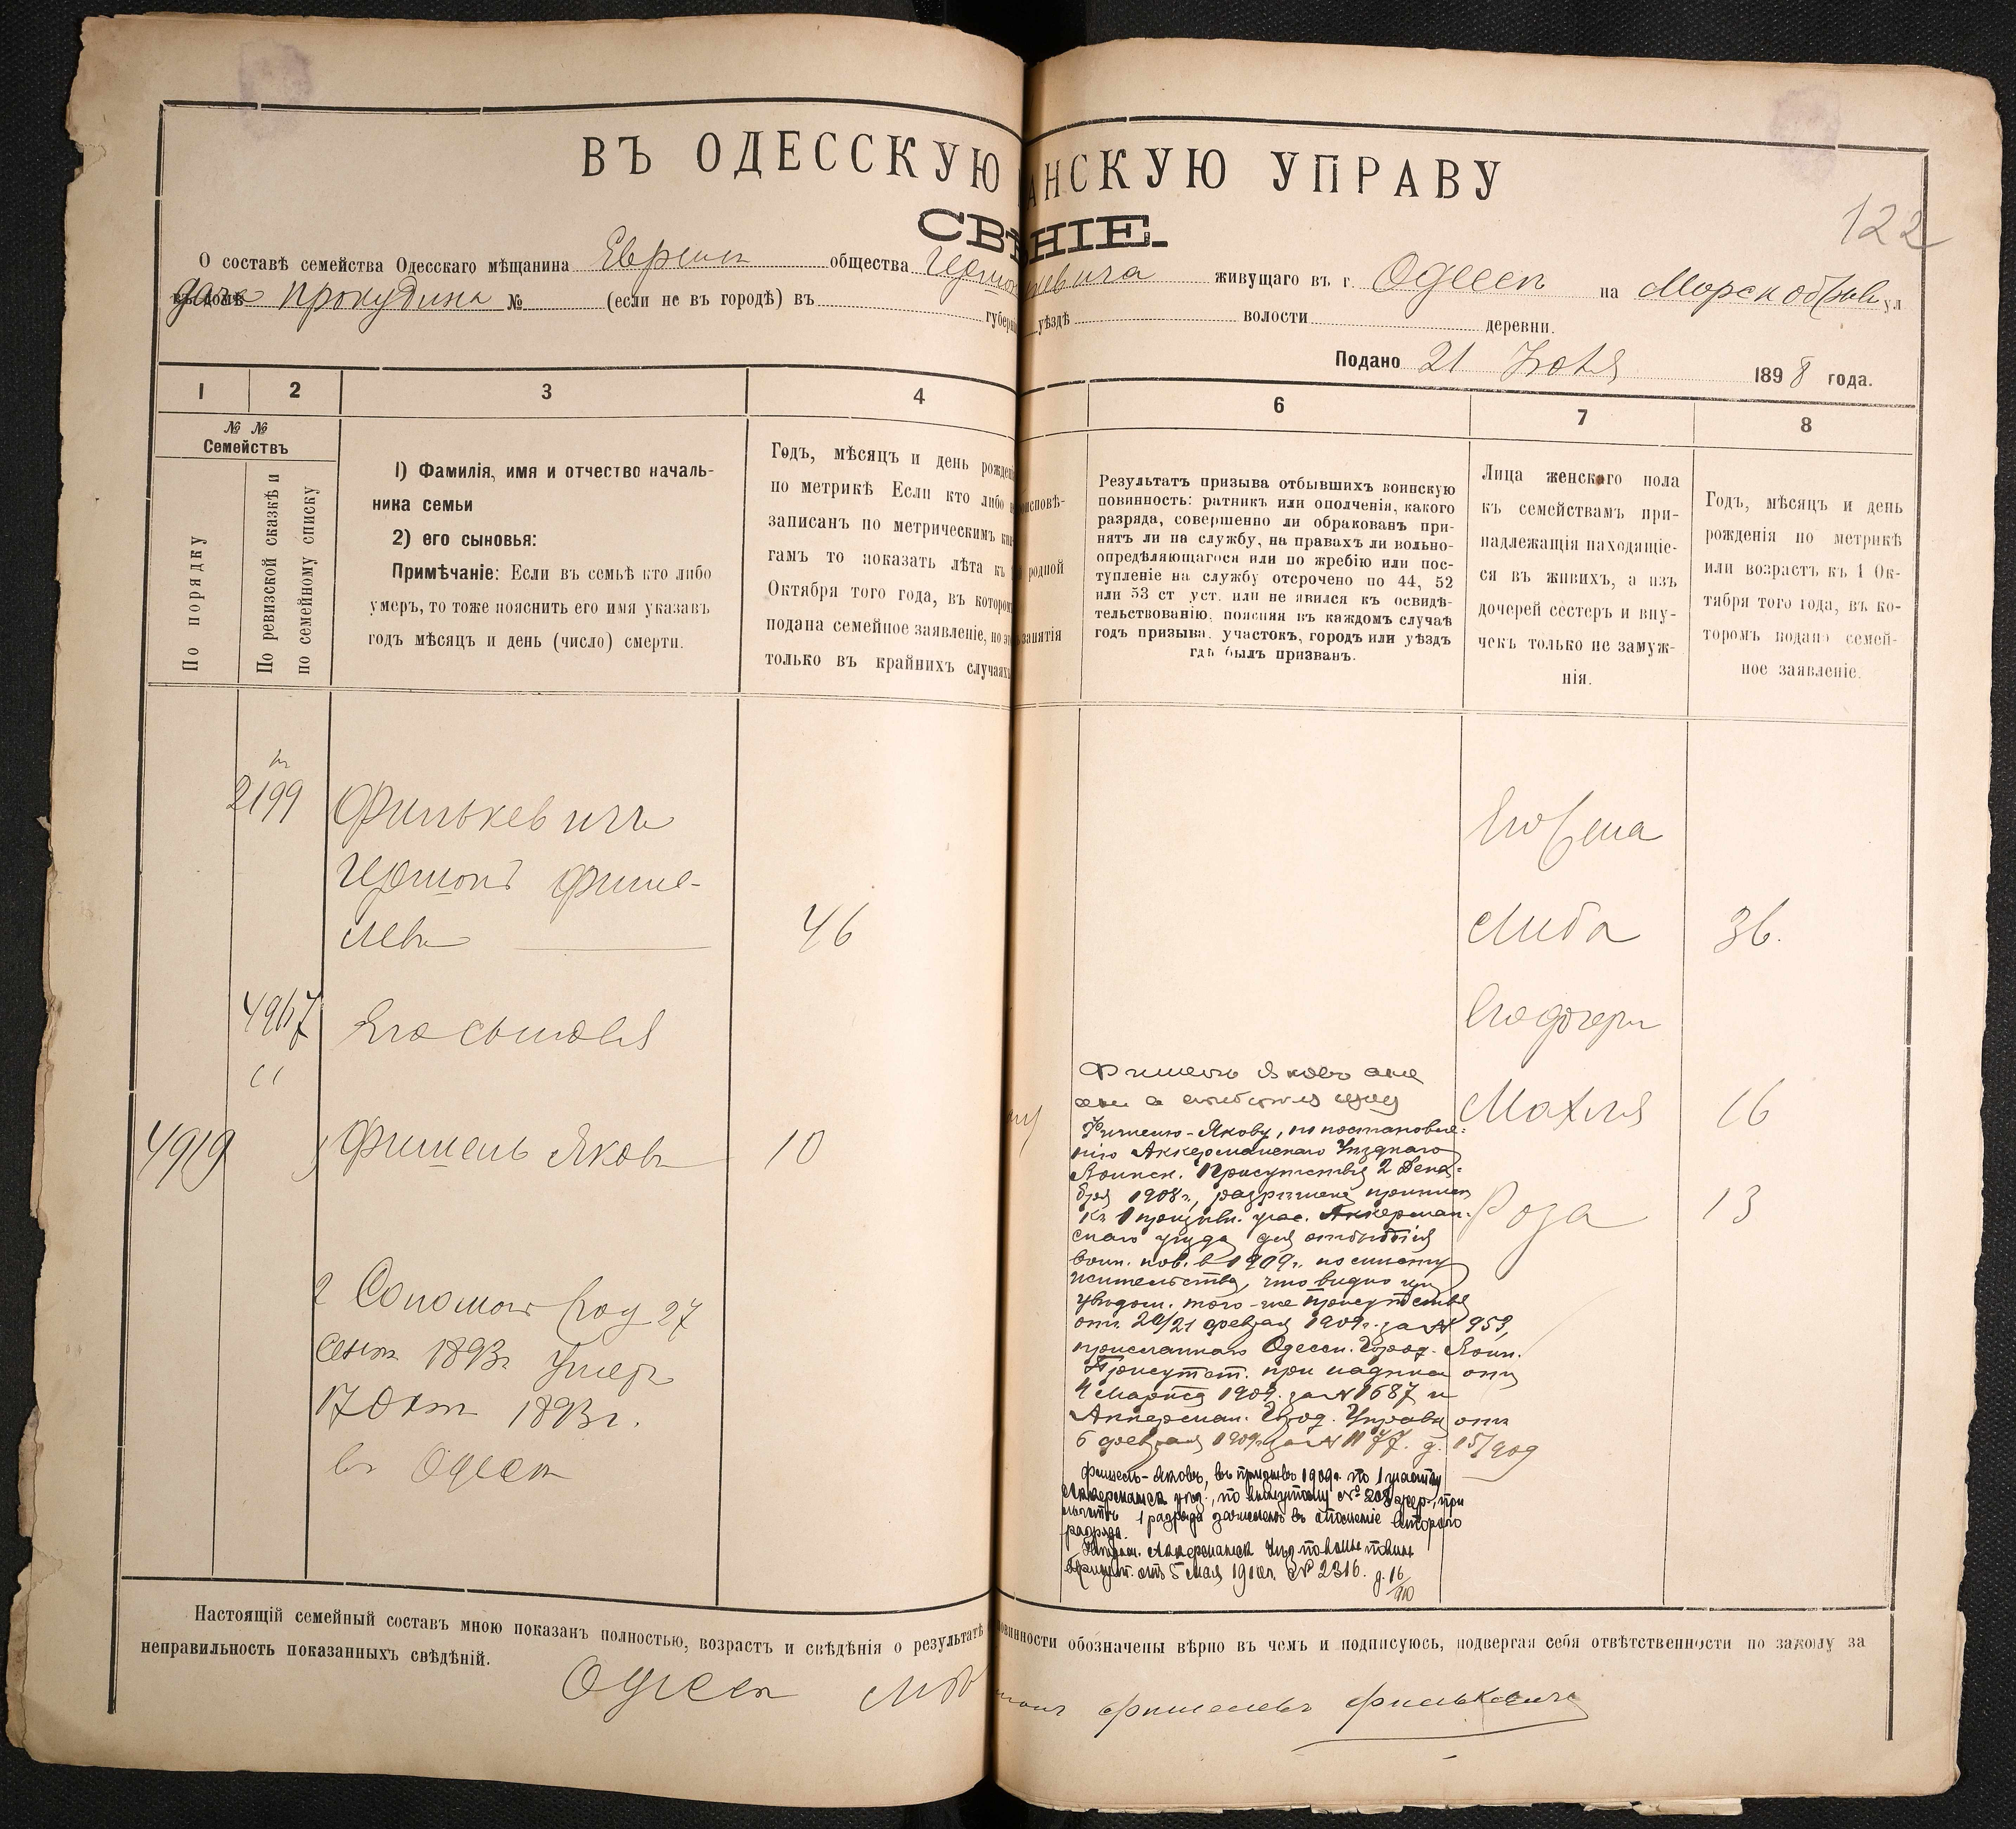 122
ВЪ ОДЕССКУЮ АНСКУЮ УПРАВУ
СВѢНІЕ.
О составѣ семейства Одесскаго мѣщанина Еврейск общества живущаго въ г. Одессѣ на Морск обрыв ул
въ домѣ дача Прокудина № (если не въ городѣ) въ губерн уѣздѣ волости деревни.
Подано 21 Іюля 1898 года.
1 2 3 4 6 7 8
№ № Семействъ
По порядку
По ревизской сказкѣ и по семейному списку
1) Фамилія, имя и отчество началь-
ника семьи
2) его сыновья:
Примѣчаніе: Если въ семьѣ кто либо
умеръ, то тоже пояснить его имя указавъ
годъ мѣсяцъ и день (число) смерти.
Годъ, мѣсяцъ и день рожден
по метрикѣ Если кто либо
записанъ по метрическимъ кни
гамъ то показать лѣта къ
Октября того года, въ котором
подана семейное заявленіе, но
только въ крайнихъ случаяхъ
исповѣ-
родной
занятія
Результатъ призыва отбывшихъ воинскую
повинность: ратникъ или ополченія, какого
разряда, совершенно ли обракованъ при-
нятъ ли на службу, на правахъ ли вольно-
опредѣляющагося или по жребію или пос-
тупленіе на службу отсрочено по 44, 52
или 53 ст уст. или не явился къ освидѣ-
тельствованію, поясняя въ каждомъ случаѣ
годъ призыва, участокъ, городъ или уѣздъ
гдѣ былъ призванъ.
Лица женскаго пола
къ семействамъ при-
надлежащія находящіе-
ся въ живихъ, а изъ
дочерей сестеръ и вну-
чекъ только не замуж-
нія.
Годъ, мѣсяцъ и день
рожденія по метрикѣ
или возрастъ къ 1 Ок-
тября того года, въ ко-
торомъ подано семей-
ное заявленіе.
2199
Финькевичъ
Гершонъ Фише-
левъ 46
4967
Его сыновья
4919 Фишель Яковъ 10
2 Соломонъ род 27
сент 1893г умеръ
17 Окт 1893г.
въ Одессѣ
Фишелю-Якову, по постановле-
нію Аккерманскаго Уѣзднаго
Воинск. Присутствія 2 Дека-
бря 1908г., разрѣшена приписка
къ 1 призывн. учас. Аккерман-
скаго уѣзда для отбытія
воин. пов. в 1909г. по мѣсту
жительства, что видно изъ
увѣдом. того-же присутствія
отъ 20/21 февраля 1909г. за № 959,
присланнаго Одесск. Город. Воин.
Присутст. при надписи отъ
4 Марта 1909. за № 1687 и
Аккерман. Город. Управы отъ
6 февраля 1909г. за № 1177. д. 15/909
Фишель-Яковъ, въ призывъ 1909г. по 1 участку
Аккерманск уѣз.,
1 разряда зачисленъ въ ополченіе второго
разряда.
отъ 5 мая 1910г. № 2316. д. 16/910
Его жена
Либа 36.
Его дочери
Махля 16
Роза 13
Настоящій семейный составъ мною показанъ полностью, возрастъ и свѣдѣнія о результатѣ овинности обозначены вѣрно въ чемъ и подписуюсь, подвергая себя отвѣтственности по закону за
неправильность показанныхъ свѣдѣній.
Одесск Фишелевъ Финькевичъ